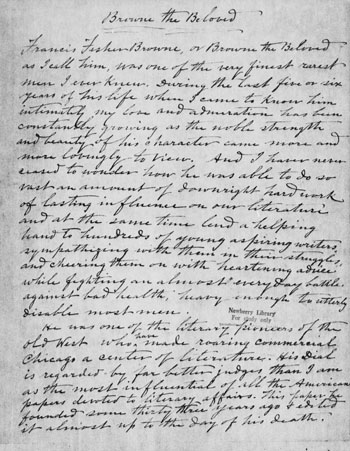 Browne the Beloved
Francis Fisher Browne, or Browne the Beloved
as I call him, was one of the very finest rarest
men I ever knew. During the last five or six
years of his life when I came to know him
intimately my love and admiration has been
constantly growing as the noble strength
and beauty of his character came more and
more lovingly to view. And I have never
ceased to wonder how he was able to do so
vast an amount of downright hard work
of lasting influence on our literature
and at the same time lend a helping
hand to hundreds of young aspiring writers
sympathizing with them in their struggles,
and cheering them on with heartening advice
while fighting an almost every day battle
against bad health, heavy enough to utterly
disable most men.
Newberry Library
For study only
He was one of the literary pioneers of the
Old West who made roaring commercial
Chicago a center of literature. His Dial
is regarded by far better judges than I am
as the most influential of all the American
papers devoted to literary affairs. This paper he
founded some thirty three years ago & edited
it almost up to the day of his death.